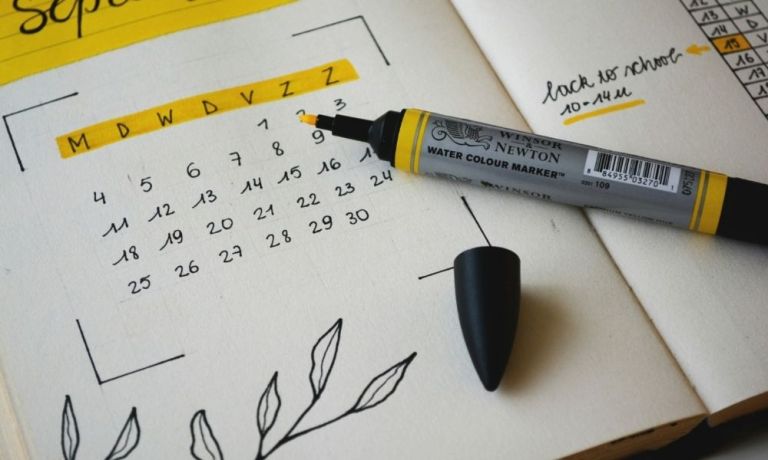 M D W D V Z Z
1 2 3
4 5 6 7 8 9
11 12 13 14 15 16
18 19 20 21 22 23 24
25 26 27 28 29 30
WINSOR
&
NEWTON
WATER COLOUR MARKER™
WINSOR
8 84955 03270 1
109
back to school
10-14u
12
13 W
14 D
15 V
16
17